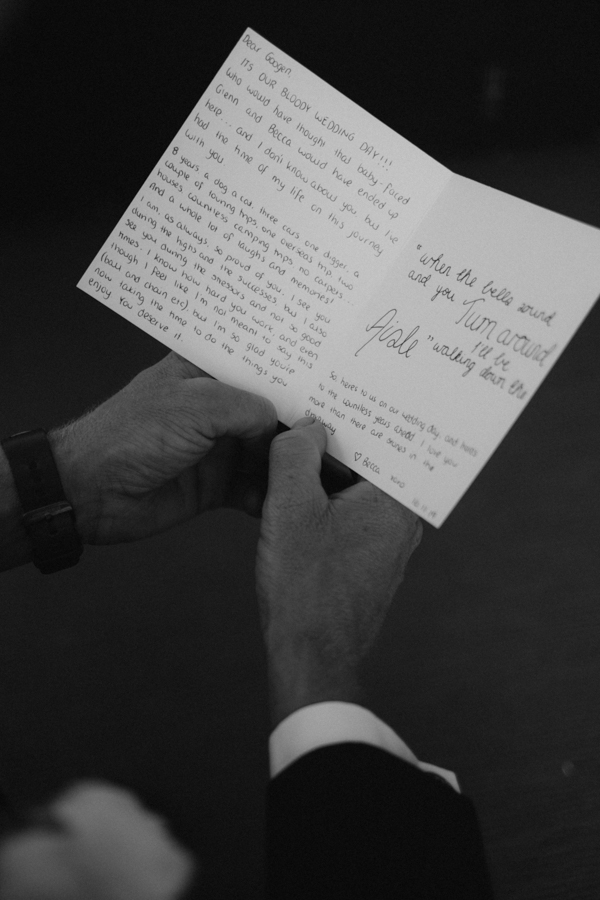 Dear Googen,
ITS OUR BLOODY WEDDING DAY!!!
Who would have thought that baby-faced
Glenn and Becca would have ended up
here... and I don't know about you but I've
had the time of my life on this journey
with you.
8 years, a dog, a cat, three cars, one digger, a
couple of touring trips, one overseas trip, two
houses, countless camping trips, no carpets...
And a whole lot of laughs and memories!
I am, as always, so proud of you. I see you
during the highs and the successes, but I also
see you during the stressors and not so good
times. I know how hard you work, and even
though I feel like I'm not meant to say this
(ball and chain etc) but I'm so glad you're
now taking the time to do the things you
enjoy. You deserve it.
"when the bells sound
and you Turn around
I'll be
walking down the
Aisle"
So, heres to us on our wedding day, and heres
to the countless years ahead. I love you
more than there are stones in the
driveway
♡ Becca xoxo